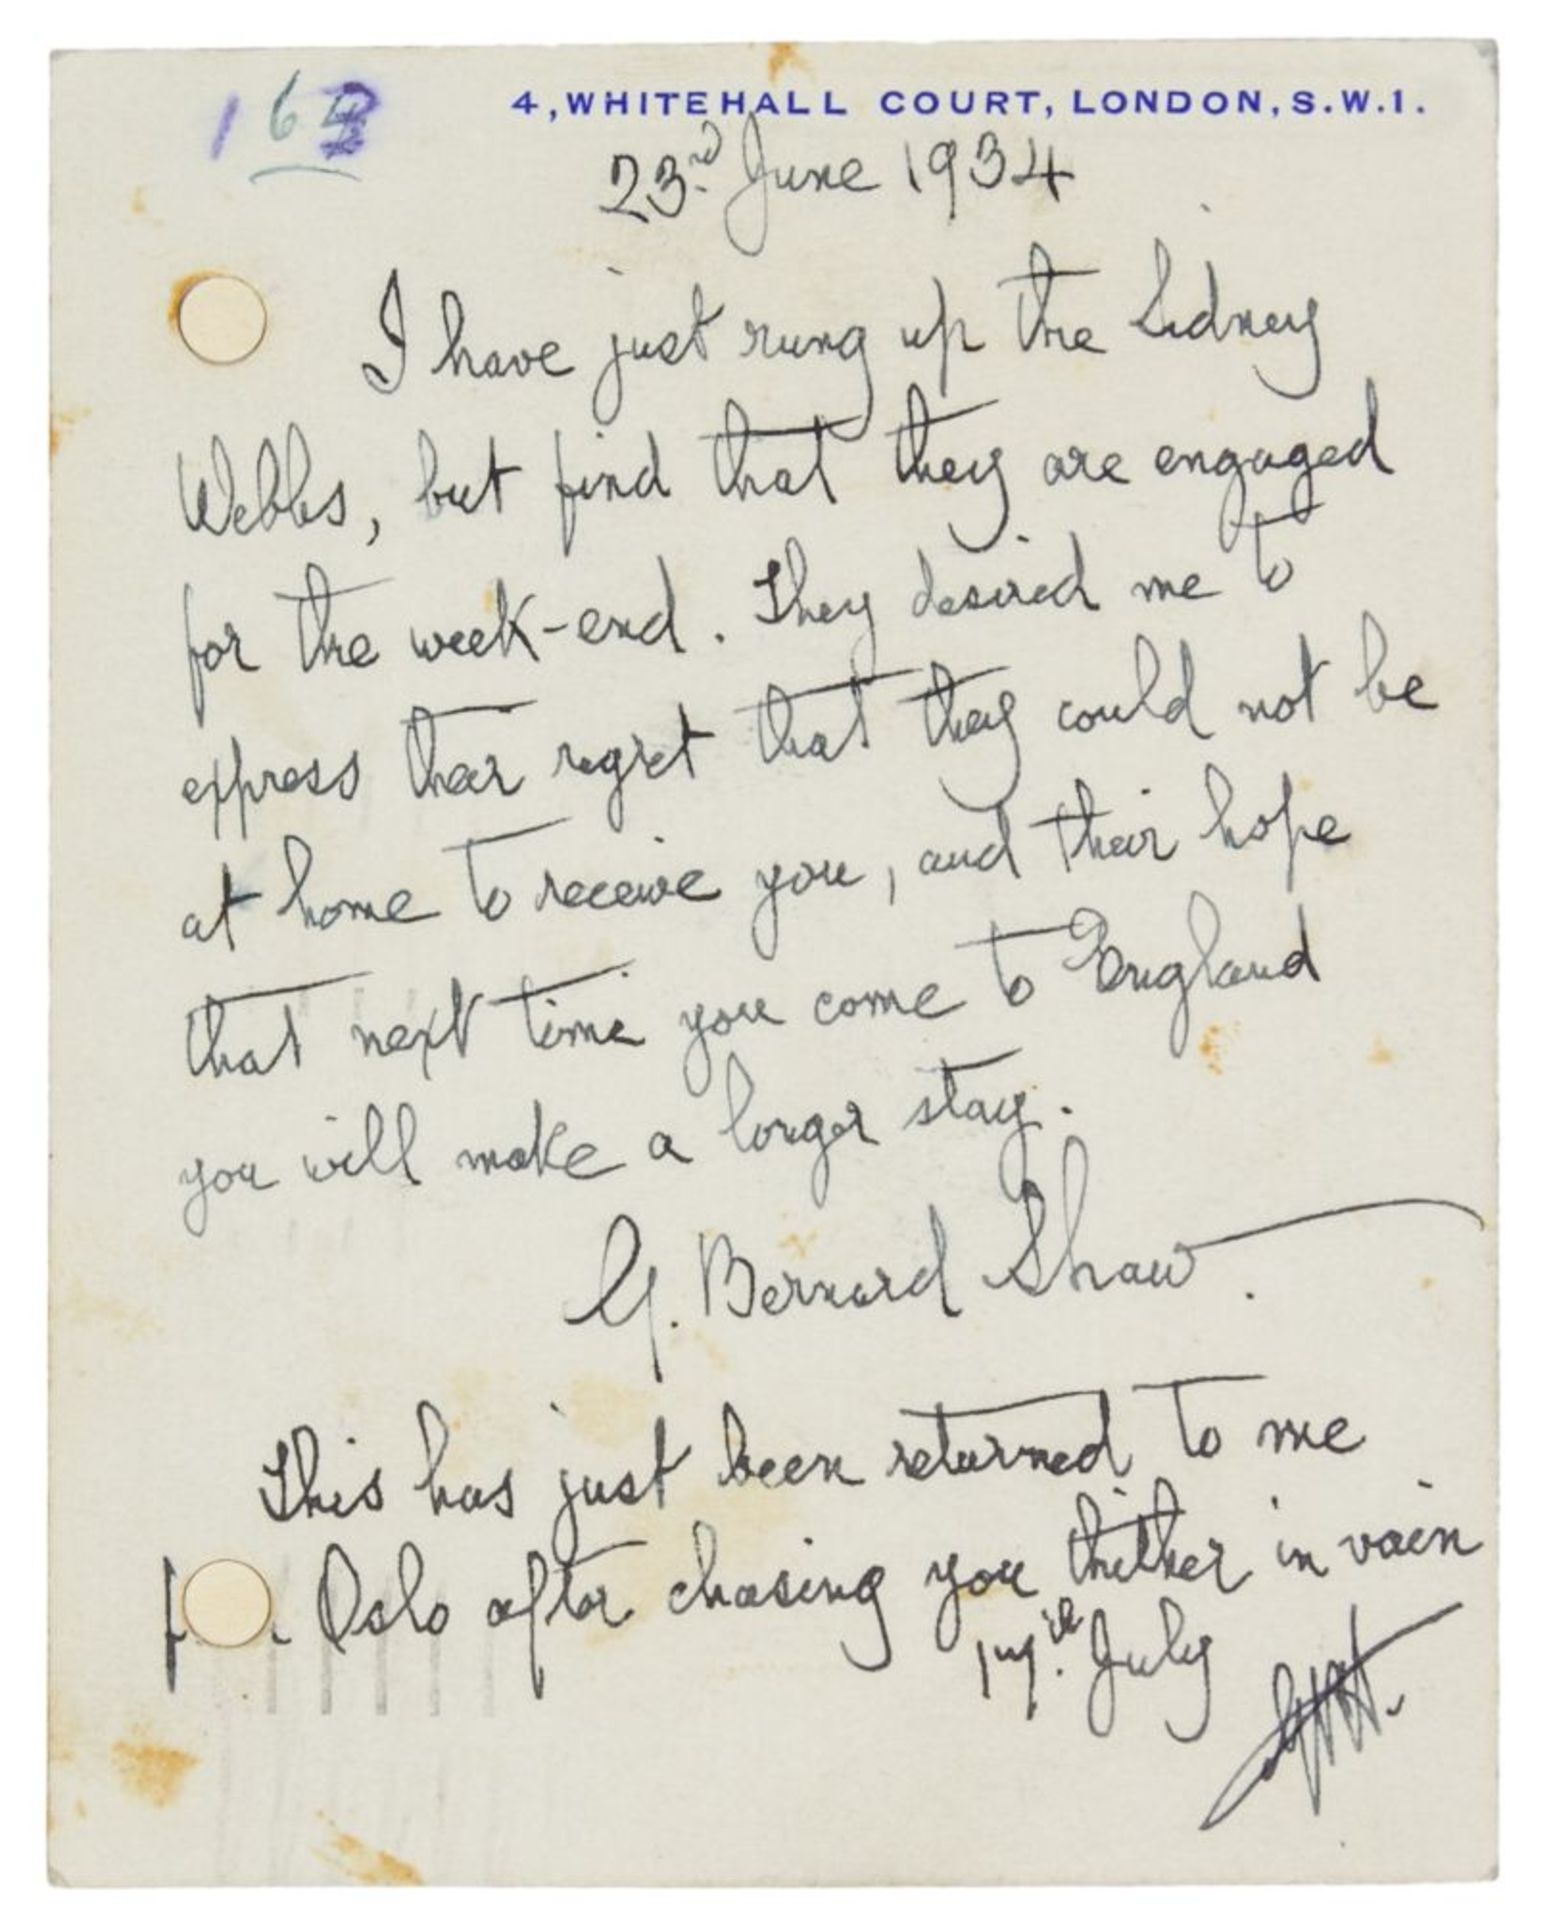 4, WHITEHALL COURT, LONDON, S.W.1.
23rd. June 1934
I have just rung up the Sidney
Webbs, but find that they are engaged
for the week-end. They desired me to
express their regret that they could not be
at home to receive you, and their hope
that next time you come to England
you will make a longer stay.
G. Bernard Shaw.
This has just been returned to me
Oslo after chasing you thither in vain
17th. July